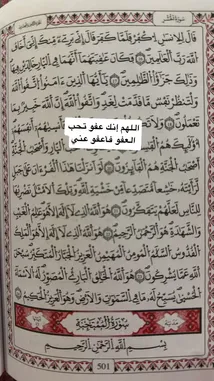 سورة الحشر
قَالَ لِلْإِنسَٰنِ ٱكْفُرْ فَلَمَّا كَفَرَ قَالَ إِنِّى بَرِىٓءٌ مِّنكَ إِنِّىٓ أَخَافُ
ٱللَّهَ رَبَّ ٱلْعَٰلَمِينَ ١٦ فَكَانَ عَٰقِبَتَهُمَآ أَنَّهُمَا فِى ٱلنَّارِ خَٰلِدَيْنِ فِيهَا
وَذَٰلِكَ جَزَٰٓؤُا۟ ٱلظَّٰلِمِينَ ١٧ يَٰٓأَيُّهَا ٱلَّذِينَ ءَامَنُوا۟ ٱتَّقُوا۟ ٱللَّهَ
وَلْتَنظُرْ نَفْسٌ مَّا قَدَّمَتْ لِغَدٍ وَٱتَّقُوا۟ ٱللَّهَ إِنَّ ٱللَّهَ خَبِيرٌۢ بِمَا
تَعْمَلُونَ
اللهم إنك عفو تحب
العفو فاعفو عني
أَصْحَٰبُ ٱلْجَنَّةِ هُمُ ٱلْفَآئِزُونَ ٢٠ لَوْ أَنزَلْنَا هَٰذَا ٱلْقُرْءَانَ عَلَىٰ جَبَلٍ
لَّرَأَيْتَهُۥ خَٰشِعًا مُّتَصَدِّعًا مِّنْ خَشْيَةِ ٱللَّهِ وَتِلْكَ ٱلْأَمْثَٰلُ نَضْرِبُهَا
لِلنَّاسِ لَعَلَّهُمْ يَتَفَكَّرُونَ ٢١ هُوَ ٱللَّهُ ٱلَّذِى لَآ إِلَٰهَ إِلَّا هُوَ عَٰلِمُ ٱلْغَيْبِ
وَٱلشَّهَٰدَةِ هُوَ ٱلرَّحْمَٰنُ ٱلرَّحِيمُ ٢٢ هُوَ ٱللَّهُ ٱلَّذِى لَآ إِلَٰهَ إِلَّا هُوَ ٱلْمَلِكُ
ٱلْقُدُّوسُ ٱلسَّلَٰمُ ٱلْمُؤْمِنُ ٱلْمُهَيْمِنُ ٱلْعَزِيزُ ٱلْجَبَّارُ ٱلْمُتَكَبِّرُ سُبْحَٰنَ
ٱللَّهِ عَمَّا يُشْرِكُونَ ٢٣ هُوَ ٱللَّهُ ٱلْخَٰلِقُ ٱلْبَارِئُ ٱلْمُصَوِّرُ لَهُ ٱلْأَسْمَآءُ
ٱلْحُسْنَىٰ يُسَبِّحُ لَهُۥ مَا فِى ٱلسَّمَٰوَٰتِ وَٱلْأَرْضِ وَهُوَ ٱلْعَزِيزُ ٱلْحَكِيمُ ٢٤
سُورَةُ ٱلْمُمْتَحَنَةِ
بِسْمِ ٱللَّهِ ٱلرَّحْمَٰنِ ٱلرَّحِيمِ
501